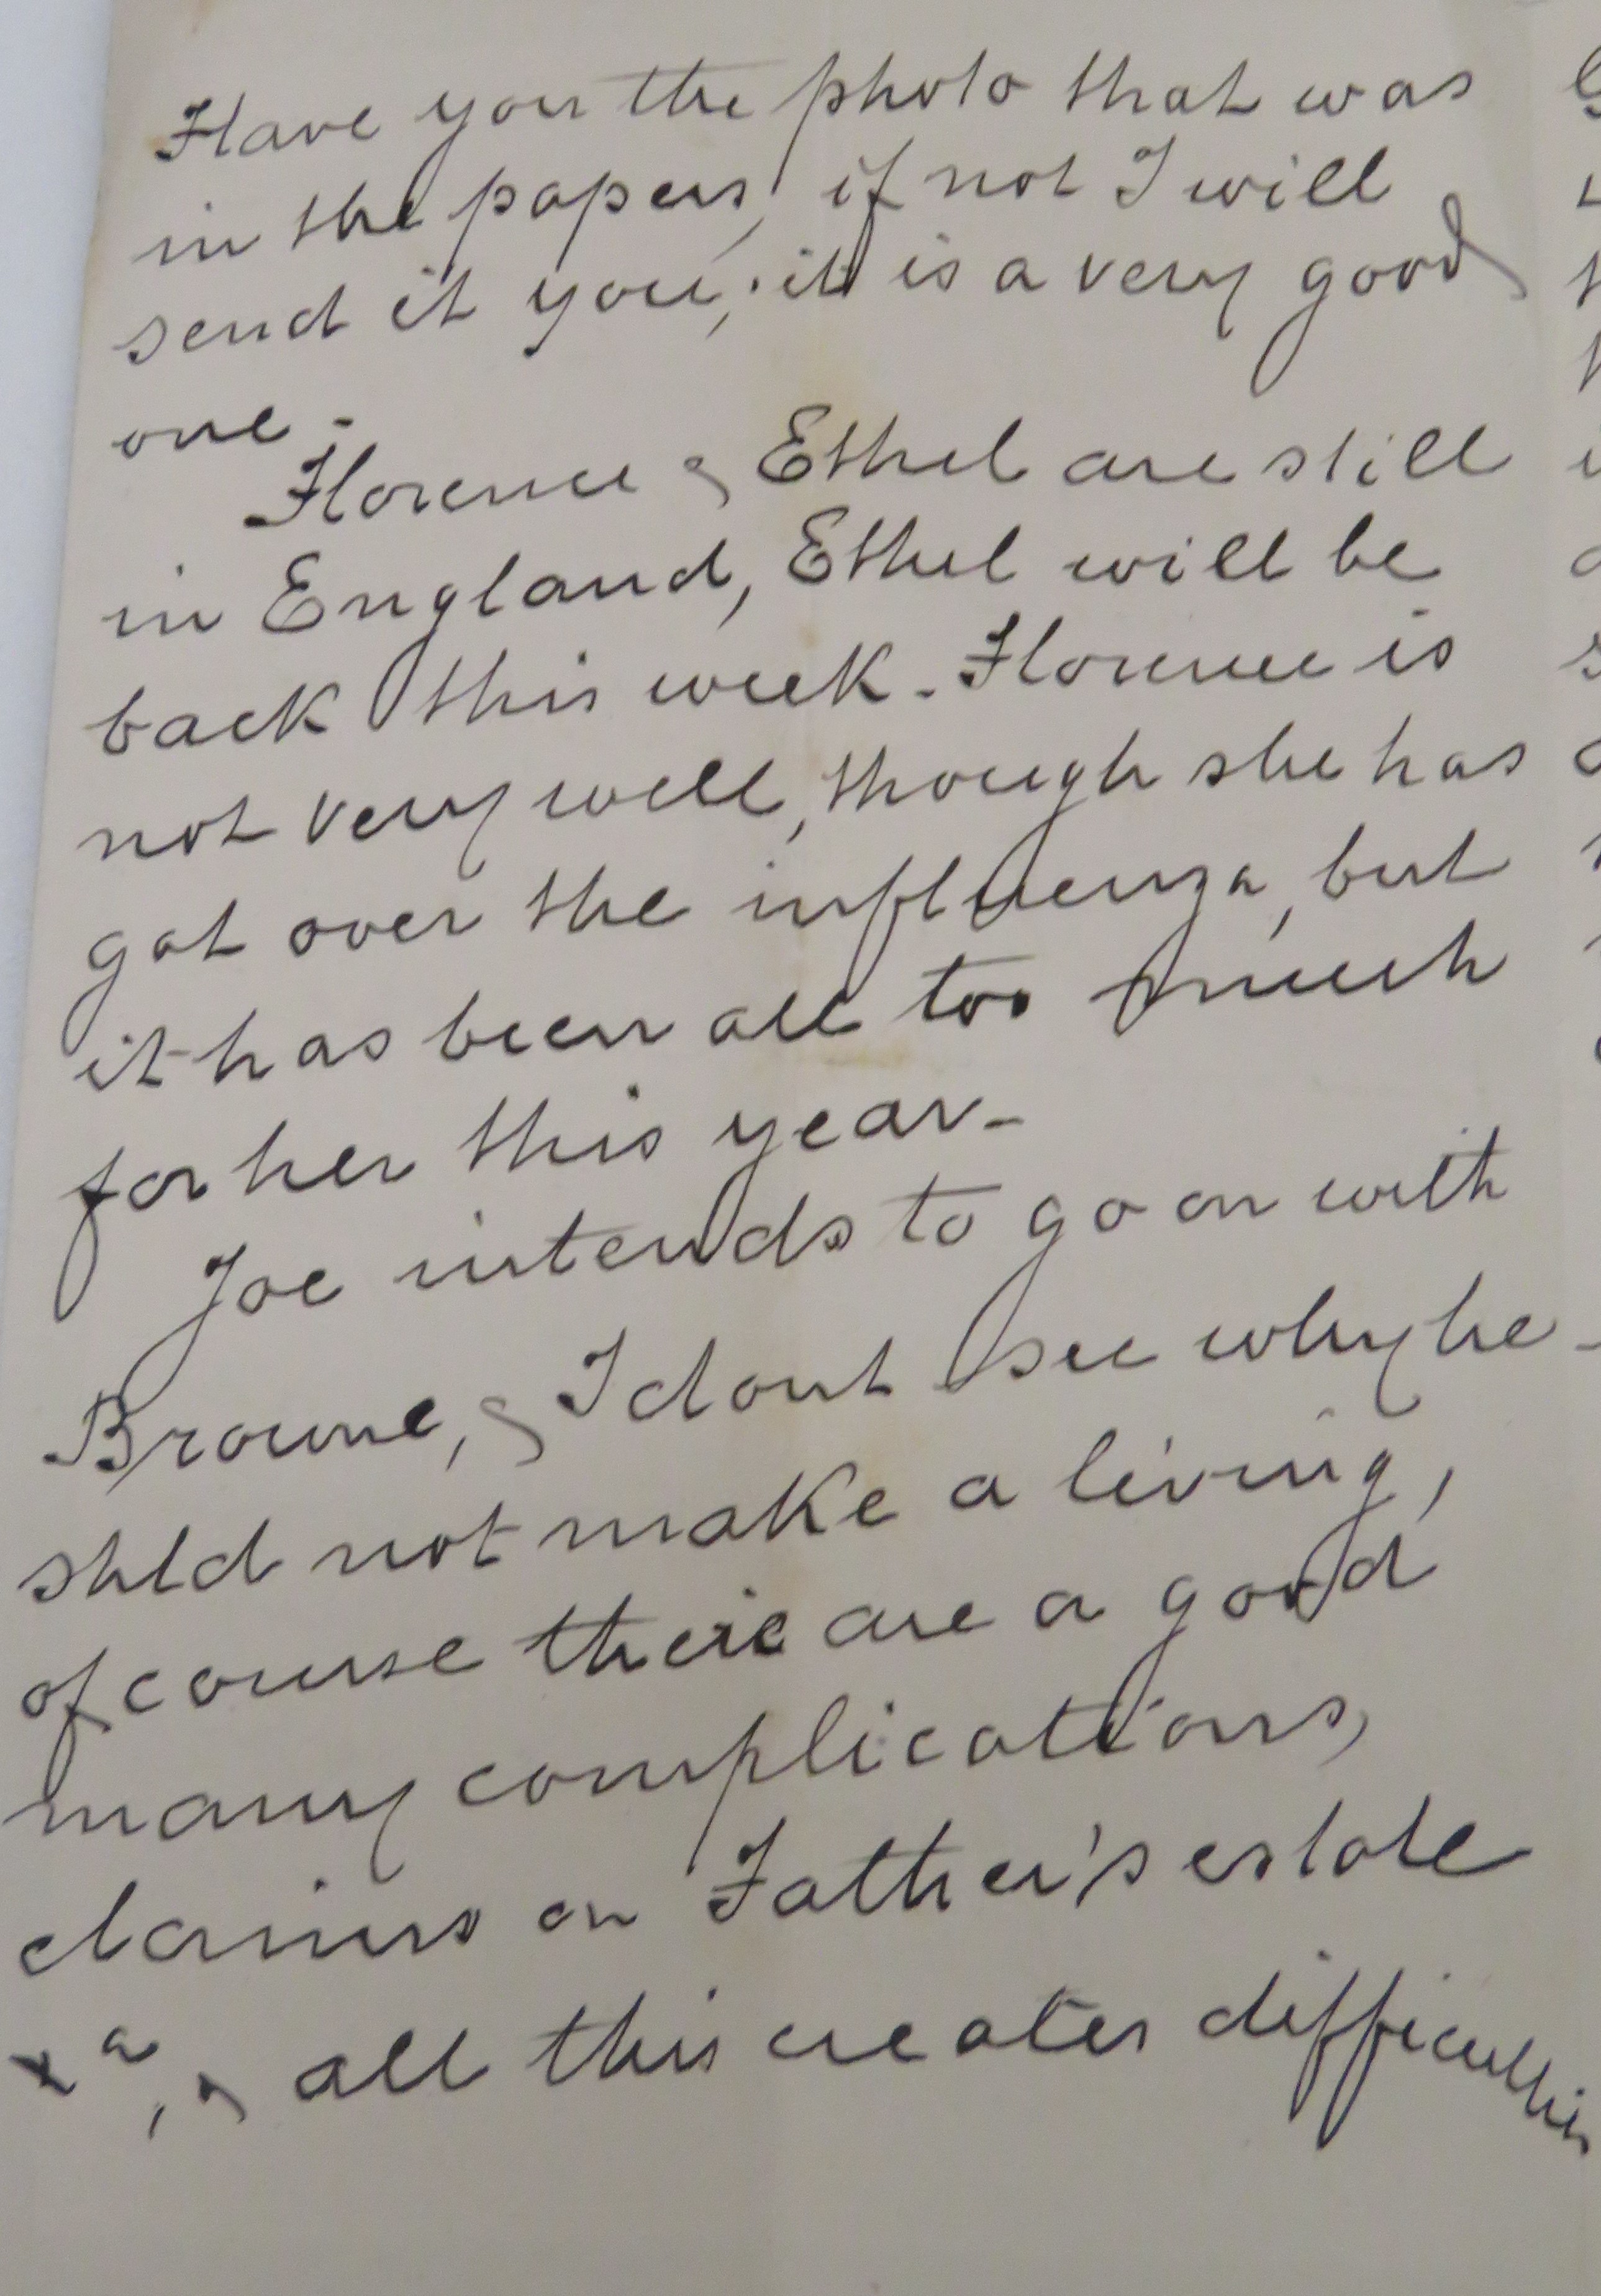 Have you the photo that was
in the papers, if not I will
send it you; it is a very good
one.
Florence & Ethel are still
in England, Ethel will be
back this week. Florence is
not very well, though she has
got over the influenza, but
it has been all too much
for her this year_
Joe intends to go on with
Browne, & I dont see why he
shld not make a living,
of course there are a good
many complications,
claims on Father's estate
&, & all this creates difficulties